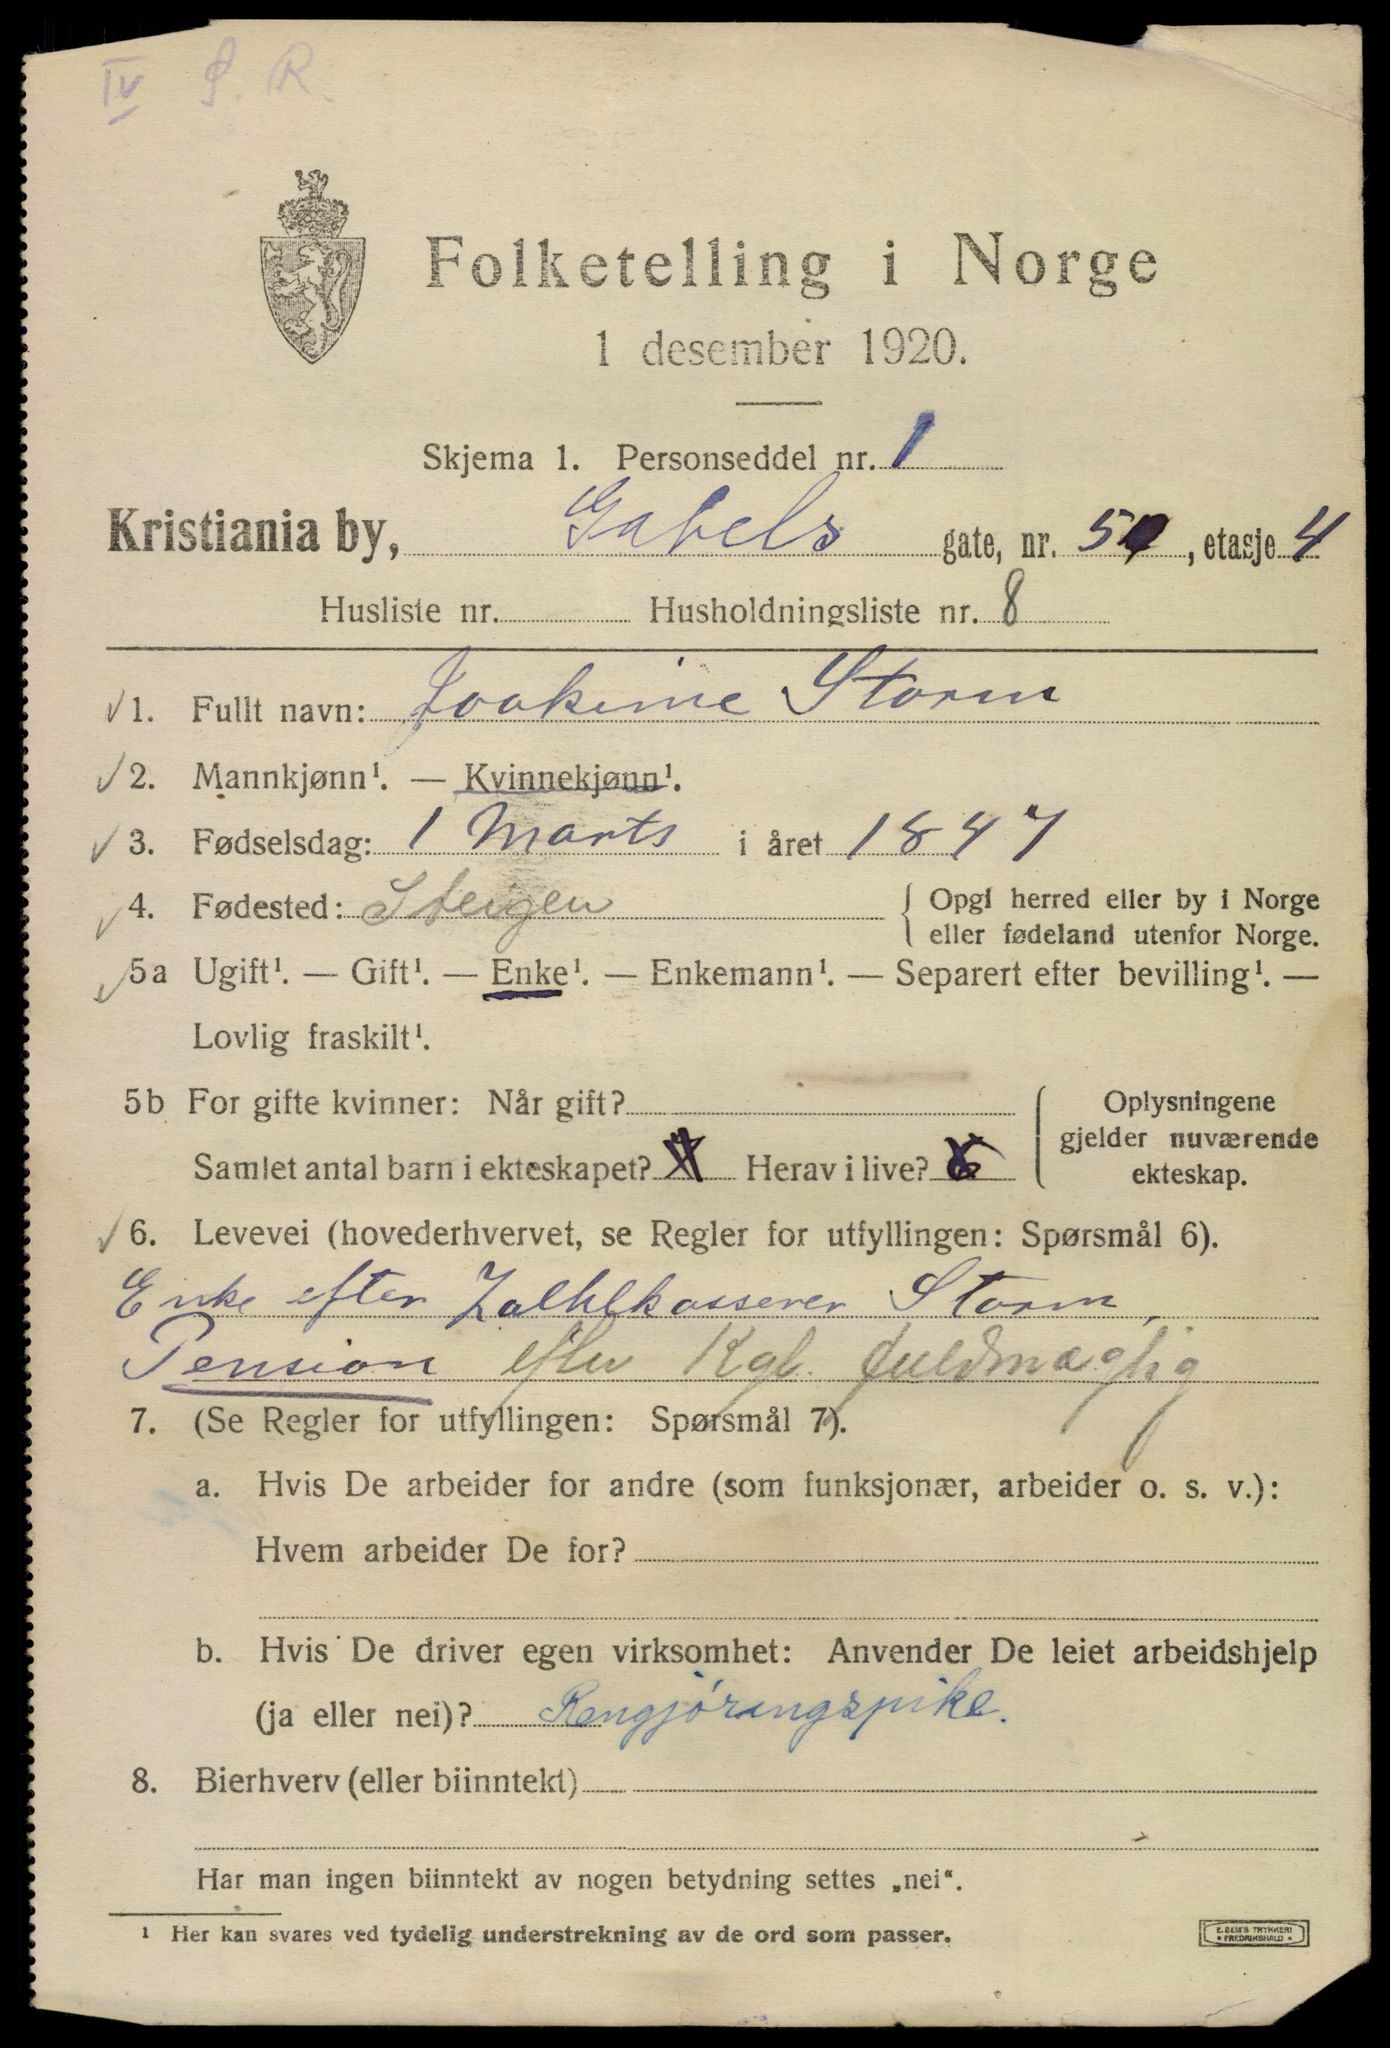 IV P. R.
Folketelling i Norge
1 desember 1920.
Skjema 1. Personseddel nr. 1
Kristiania by, Gabels gate, nr. , etasje 4
Husliste nr. Husholdningsliste nr. 8
1. Fullt navn: Joakime Storm
2. Mannkjønn¹. — Kvinnekjønn¹.
3. Fødselsdag: 1 Marts i året 1847
4. Fødested: Steigen { Opgi herred eller by i Norge
eller fødeland utenfor Norge.
5a Ugift¹. — Gift¹. — Enke¹. — Enkemann¹. — Separert efter bevilling¹. —
Lovlig fraskilt¹.
5b For gifte kvinner: Når gift? { Oplysningene
gjelder nuværende
ekteskap.
Samlet antal barn i ekteskapet? Herav i live?
6. Levevei (hovederhvervet, se Regler for utfyllingen: Spørsmål 6).
Enke efter Storm,
Pension efter Kgl. fuldmægtig
7. (Se Regler for utfyllingen: Spørsmål 7).
a. Hvis De arbeider for andre (som funksjonær, arbeider o. s. v.):
Hvem arbeider De for?
b. Hvis De driver egen virksomhet: Anvender De leiet arbeidshjelp
(ja eller nei)? Rengjøringspike.
8. Bierhverv (eller biinntekt)
Har man ingen biinntekt av nogen betydning settes „nei“.
¹ Her kan svares ved tydelig understrekning av de ord som passer.
E. SEM'S TRYKKERI
• FREDRIKSHALD •